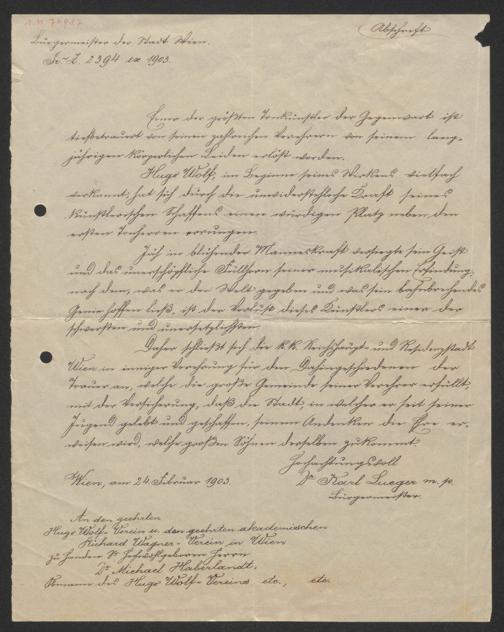 Abschrift
Bürgermeister der Stadt Wien.
Pr. Z. 2394 ex 1903.
Einer der größten Tonkünstler der Gegenwart ist
tiefbetrauert von seinen zahlreichen Verehrern von seinem lang-
jährigen körperlichen Leiden erlöst worden.
Hugo Wolf, im Beginne seines Wirkens vielfach
verkannt, hat sich durch die unwiderstehliche Kraft seines
künstlerischen Schaffens einen würdigen Platz neben den
ersten Tonheroen errungen.
Jäh in blühender Manneskraft versiegte sein Geist
und das unerschöpfliche Füllhorn seiner musikalischen Erfindung,
nach dem, was er der Welt gegeben und was sein bahnbrechendes
Genie hoffen ließ, ist der Verlust dieses Künstlers einer der
schwersten und unersetzlichsten.
Daher schließt sich die k.k. Reichshaupt- und Residenzstadt
Wien in inniger Verehrung für den Dahingeschiedenen der
Trauer an, welche die große Gemeinde seiner Verehrer erfüllt,
mit der Versicherung, daß die Stadt, in welcher er seit seiner
Jugend gelebt und geschaffen, seinem Andenken die Ehre er-
weisen wird, welche großen Söhnen derselben zukommt.
Hochachtungsvoll
Wien, am 24. Februar 1903.
Dr Karl Lueger m. p.
Bürgermeister.
An den geehrten
Hugo Wolf-Verein u. den geehrten akademischen
Richard Wagner-Verein in Wien
zu Handen Sr Hochwohlgeboren Herrn
Dr. Michael Haberlandt,
Obmann des Hugo Wolf-Vereins etc., etc.